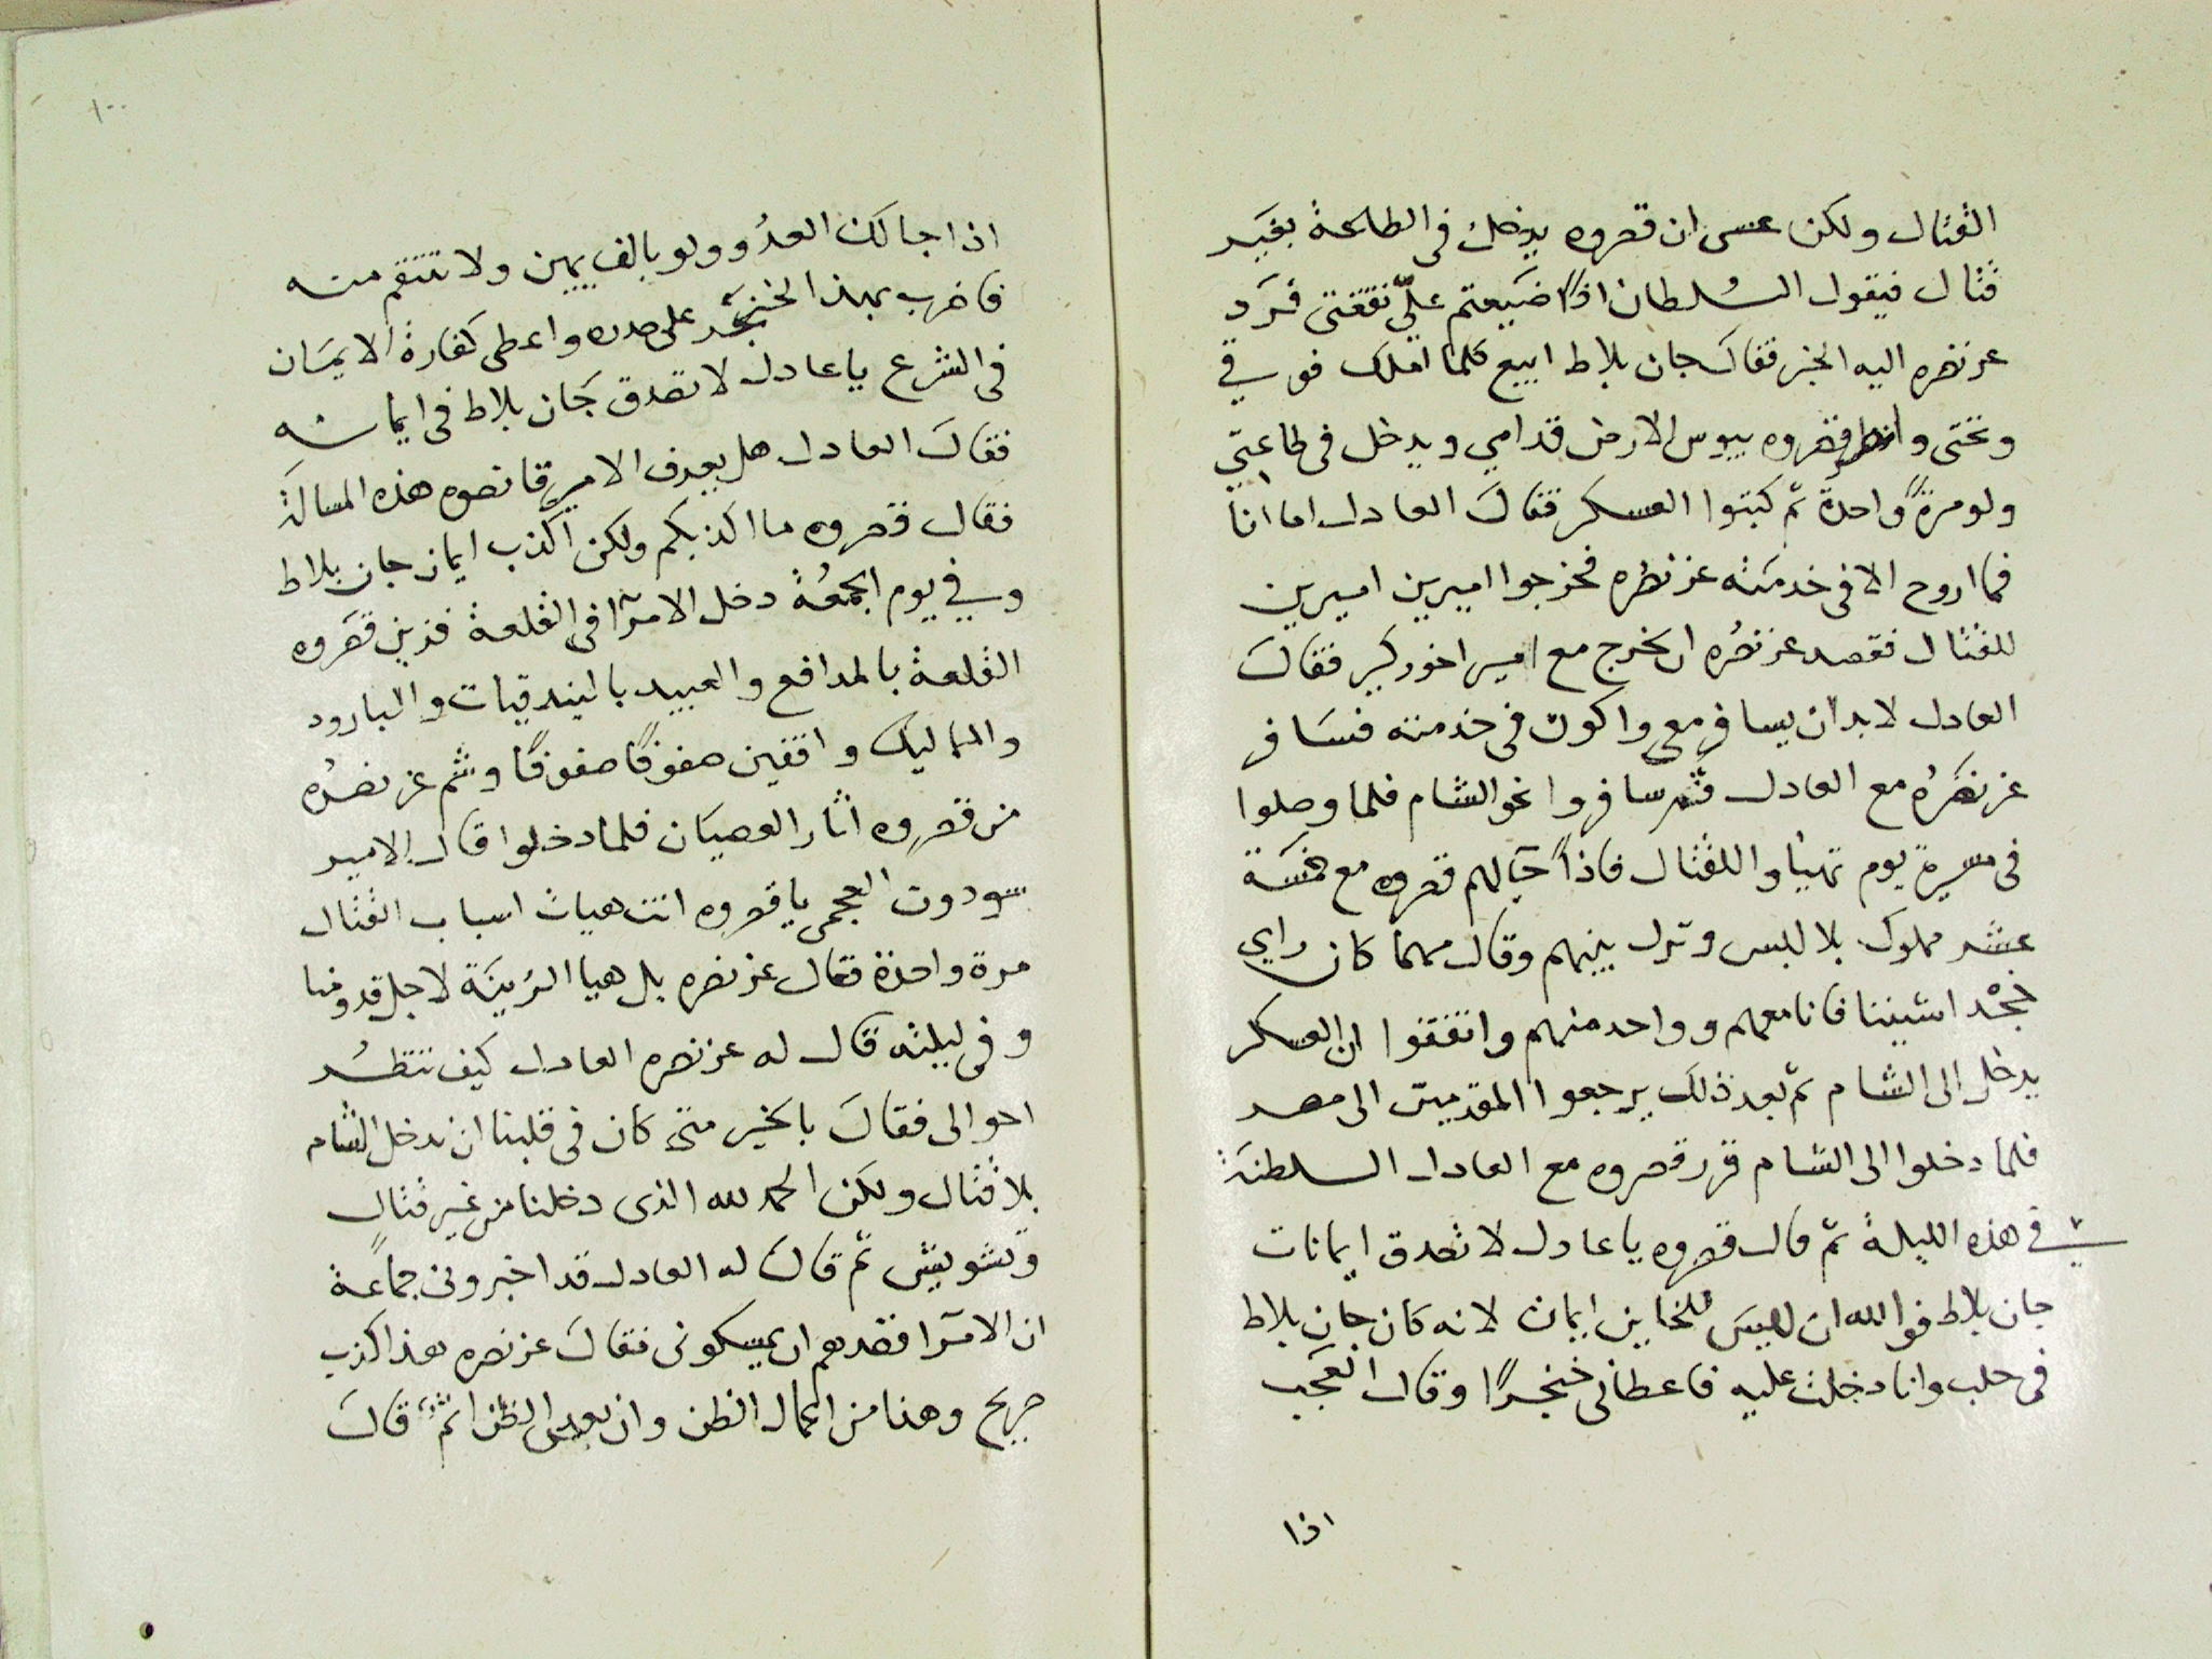 القتال ولكن عسى ان قصروه يدخل فى الطاعة بغير
قتال فيقول السلطان اذًا ضيعتم علىّ نفقتى فرد
عز نصره اليه الخبر فقال جان بلاط ابيع كلما املك فوقي
وتحتى وانظر قصروه يبوس الارض قدامي ويدخل فى طاعتي
ولو مرةً واحدة ثم كبتوا العسكر فقال العادل اما انا
فما اروح الا فى خدمته عز نصره فخرجوا اميرين اميرين
للقتال فقصد عز نصره ان يخرج مع امير اخور كبير فقال
العادل لا بد ان يسافر معى واكون فى خدمته فسافر
عز نصره مع العادل ثم سافروا نحو الشام فلما وصلوا
فى مسيرة يوم تهيأوا للقتال فاذًا جا لهم قصروه مع خمسة
عشر مملوك بلا لبس ونزل بينهم وقال مهما كان راي
نجد اشيننا فانا معهم وواحد منهم واتفقوا ان العسكر
يدخل الى الشام ثم بعد ذلك يرجعوا المقدمين الى مصر
فلما دخلوا الى الشام قرر قصروه مع العادل السلطنة
في هذه الليلة ثم قال قصروه يا عادل لا تصدق ايمانات
جان بلاط فوالله ان ليس للخاين ايمان لانه كان جان بلاط
فى حلب وانا دخلت عليه فاعطانى خنجرًا وقال العجب
اذا
١٠٠
اذا جا لك العدُو ولو بالف يمين ولا تنتقم منه
فاضرب بهذا الخنجر على صدره واعطى كفارة الايمان
فى الشرع يا عادل لا تصدق جان بلاط فى ايمانه
فقال العادل هل يعرف الامير قانصوه هذه المسالة
فقال قصروه ما اكذبكم ولكن اكذب ايمان جان بلاط
وفي يوم الجمعُة دخل الامرآ فى القلعة فزين قصروه
القلعة بالمدافع والعبيد بالبندقيات والبارود
والمماليك واقفين صفوفًا صفوفًا وشم عز نصرُه
من قصروه اثار العصيان فلما دخلوا قال الامير
سودون العجمى يا قصروه انت هيات اسباب القتال
مرة واحدة فقال عز نصره بل هيا الزينة لاجل قدومنا
وفى ليلته قال له عز نصره العادل كيف تنظُر
احوالى فقال بالخير متى كان فى قلبنا ان ندخل الشام
بلا قتال ولكن الحمد لله الذى دخلنا من غير قتالٍ
وتشويش ثم قال له العادل قد اخبرونى جماعة
ان الامرآ قصدهم ان يمسكونى فقال عز نصره هذا كذب
صريح وهذا من اعمال الظن وان بعض الظن اثم قال